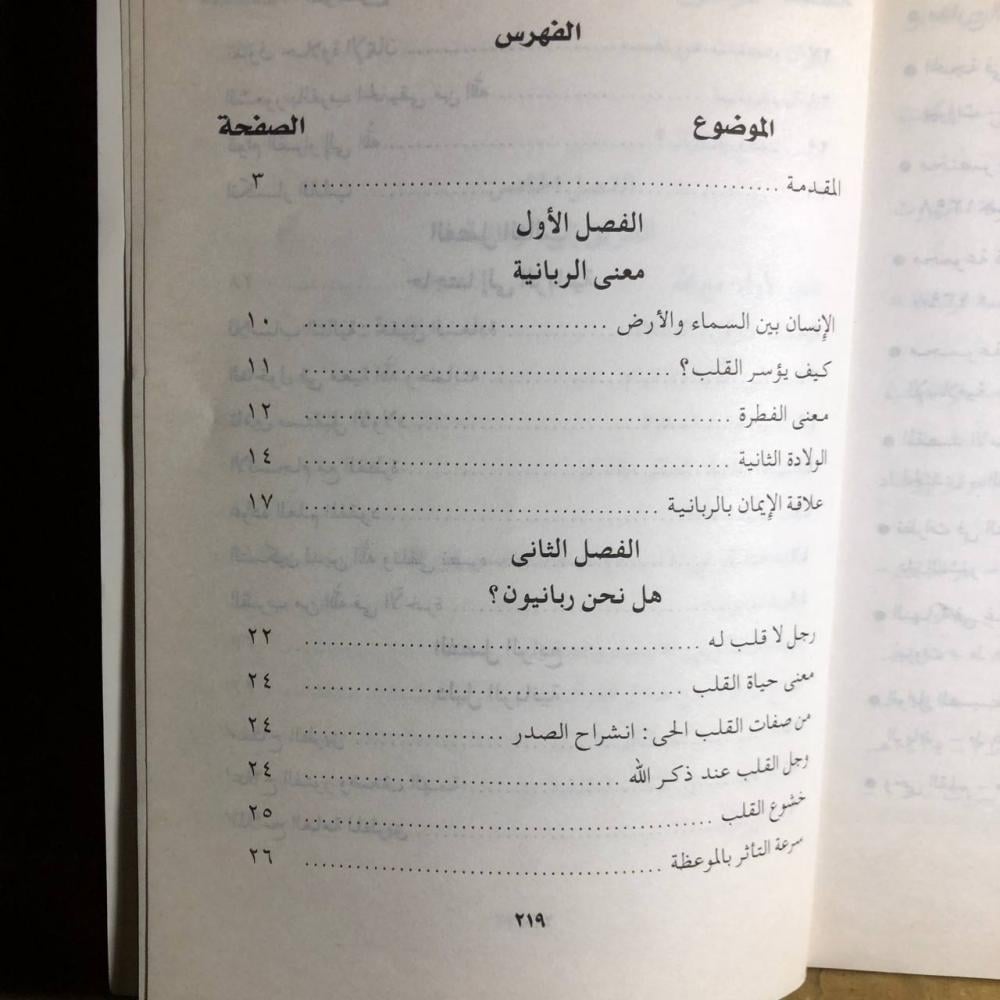 الفهرس
الموضوع الصفحة
المقدمة ........................................ ٣
الفصل الأول
معنى الربانية
الإنسان بين السماء والأرض ........................ ١٠
كيف يؤسر القلب؟ ........................ ١١
معنى الفطرة ........................ ١٢
الولادة الثانية ........................ ١٤
علاقة الإيمان بالربانية ........................ ١٧
الفصل الثانى
هل نحن ربانيون؟
رجل لا قلب له ........................ ٢٢
معنى حياة القلب ........................ ٢٤
من صفات القلب الحى: انشراح الصدر ........................ ٢٤
وجل القلب عند ذكر الله ........................ ٢٤
خشوع القلب ........................ ٢٥
سرعة التأثر بالموعظة ........................ ٢٦
٢١٩